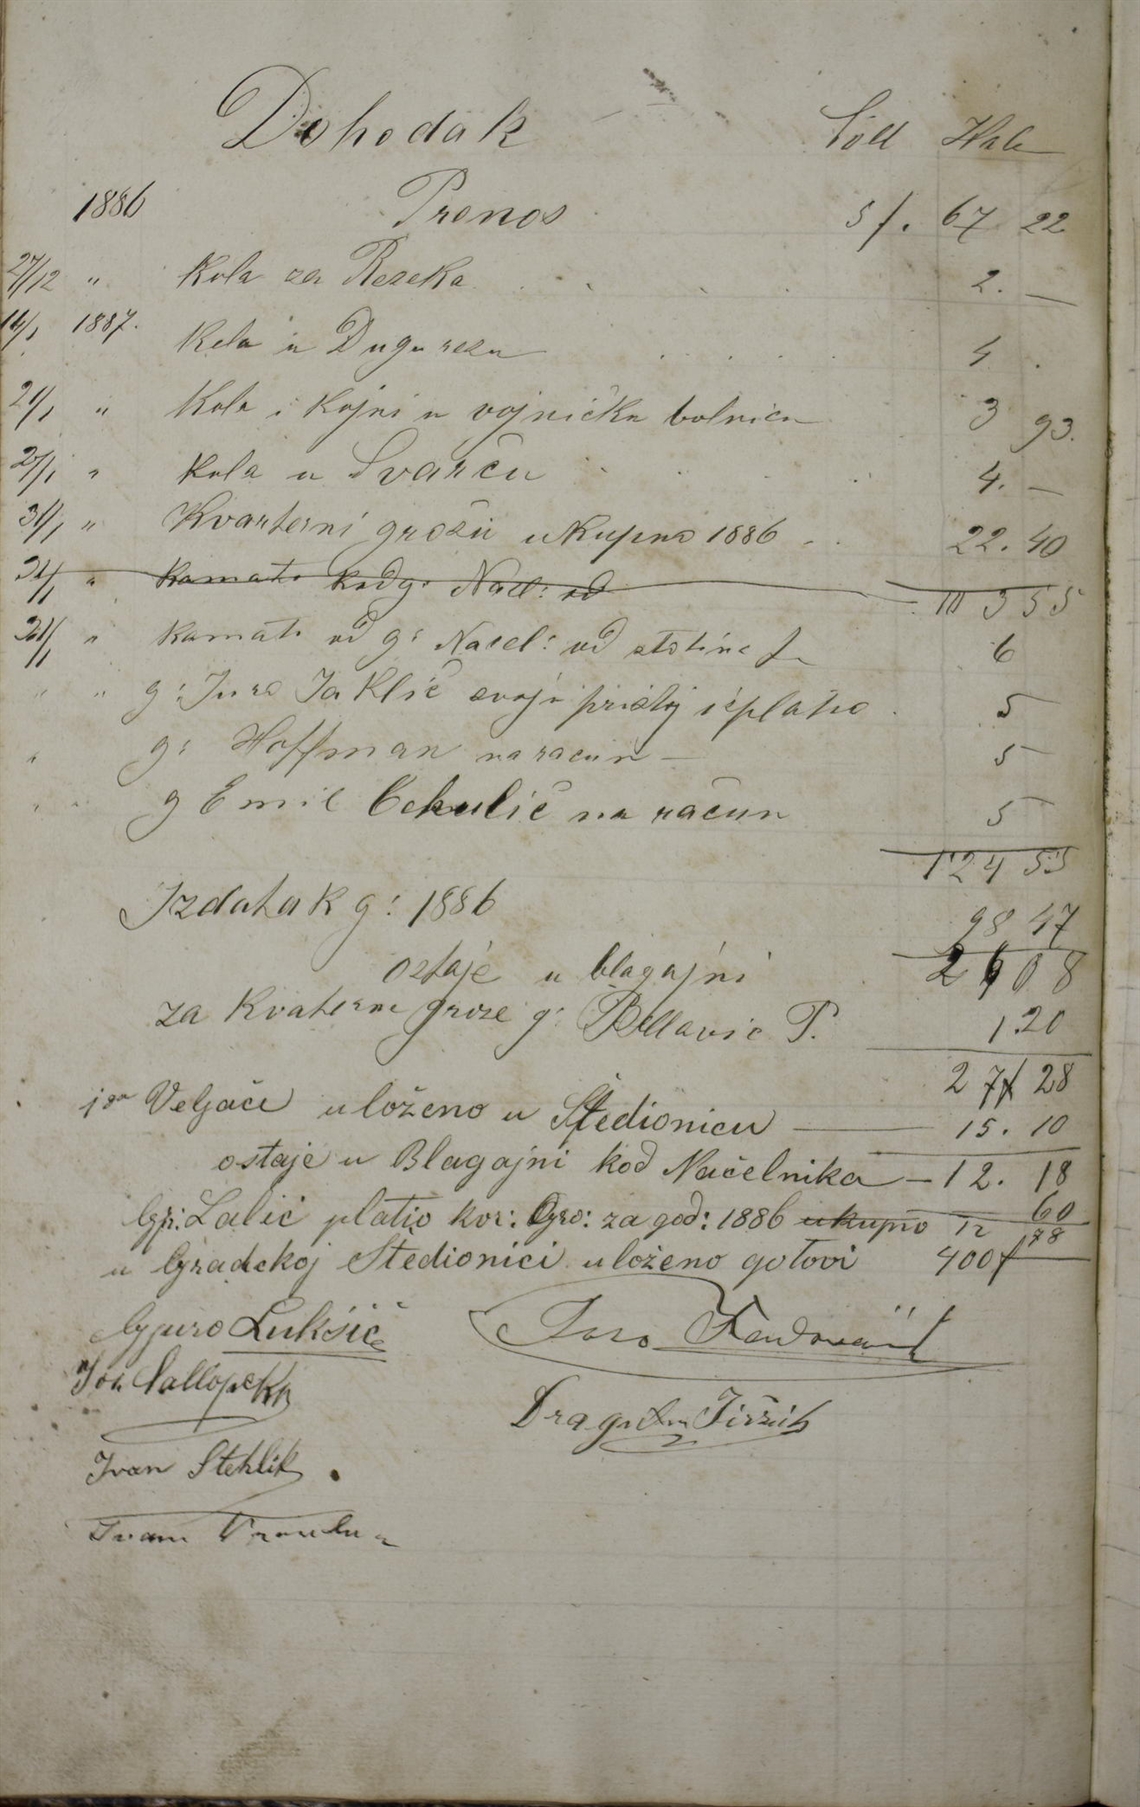 Dohodak
1886 Prenos 5 f. 67 22
27/12 " Kola za Rezeka 2. —
16/1 1887. Kola u Dugu rezu 4 .
21/1 " Kola i Kojni u vojničku bolnicu 3 93.
27/1 " Kola u Švarču 4. —
31/1 " Kvarterni groši ukupno 1886 22.40
31/1 " kamate kod g: Nač: od 10 3 55
31/1 " kamate od g: Nacel: od stotine f 6
" " g: Juro Jaklić svoju pristoj isplatio 5
" g: Hoffman na racun — 5
" " g Emil Cekulić na račun 5
124 55
Izdatak g: 1886 98 47
ostaje u blagajni 2608
za Kvaterne groze g: Bellavić P. 1 20
27f 28
Veljače uloženo u Štedionicu — 15.10
ostaje u Blagajni kod Načelnika — 12. 18
Gp: Lalić platio kvr: Gro: za god: 1886 ukupno 60
12 78
u Gradskoj Štedionici uloženo gotovi 400f
Gjuro Lukšić
Jos. Sallopekk
Dragutin Jiržik
Ivan Stehlik.
Ivan